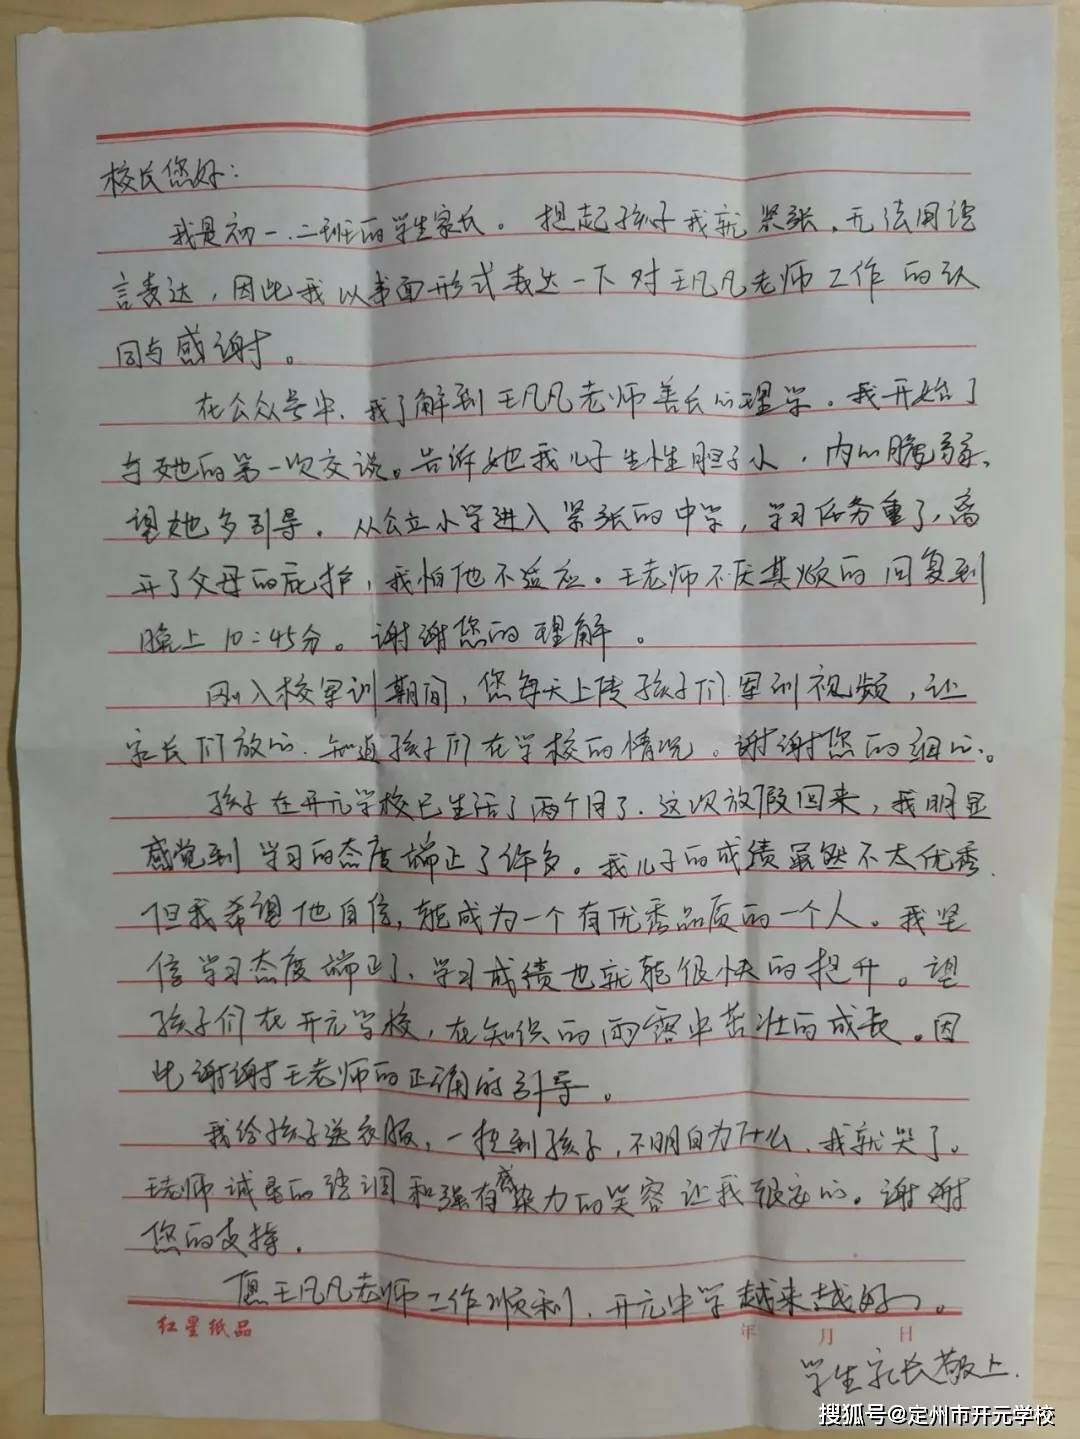 校长您好：
我是初一、二班的学生家长。想起孩子我就紧张，无法用语
言表达，因此我以书面形式表达一下对王凡凡老师工作的认
同与感谢。
在公众号中，我了解到王凡凡老师善长心理学。我开始了
与她的第一次交谈。告诉她我儿子生性胆子小，内心脆弱、
望她多引导。从公立小学进入紧张的中学，学习任务重了，离
开了父母的庇护，我怕他不适应。王老师不厌其烦的回复到
晚上10:45分。谢谢您的理解。
刚入校军训期间，您每天上传孩子们军训视频，让
家长们放心、知道孩子们在学校的情况。谢谢您的细心。
孩子在开元学校已生活了两个月了，这次放假回来，我明显
感觉到学习的态度端正了许多。我儿子的成绩虽然不太优秀，
但我希望他自信，能成为一个有优秀品质的一个人。我坚
信学习态度端正了、学习成绩也就能很快的提升。望
孩子们在开元学校，在知识的雨露中茁壮的成长。因
此谢谢王老师的正确的引导。
我给孩子送衣服，一想到孩子，不明白为什么，我就哭了。
王老师诚恳的强调和强有感染力的笑容让我很安心。谢谢
您的支持。
愿王凡凡老师工作顺利，开元中学越来越好。
红星纸品 年 月 日
学生家长敬上.
搜狐号@定州市开元学校